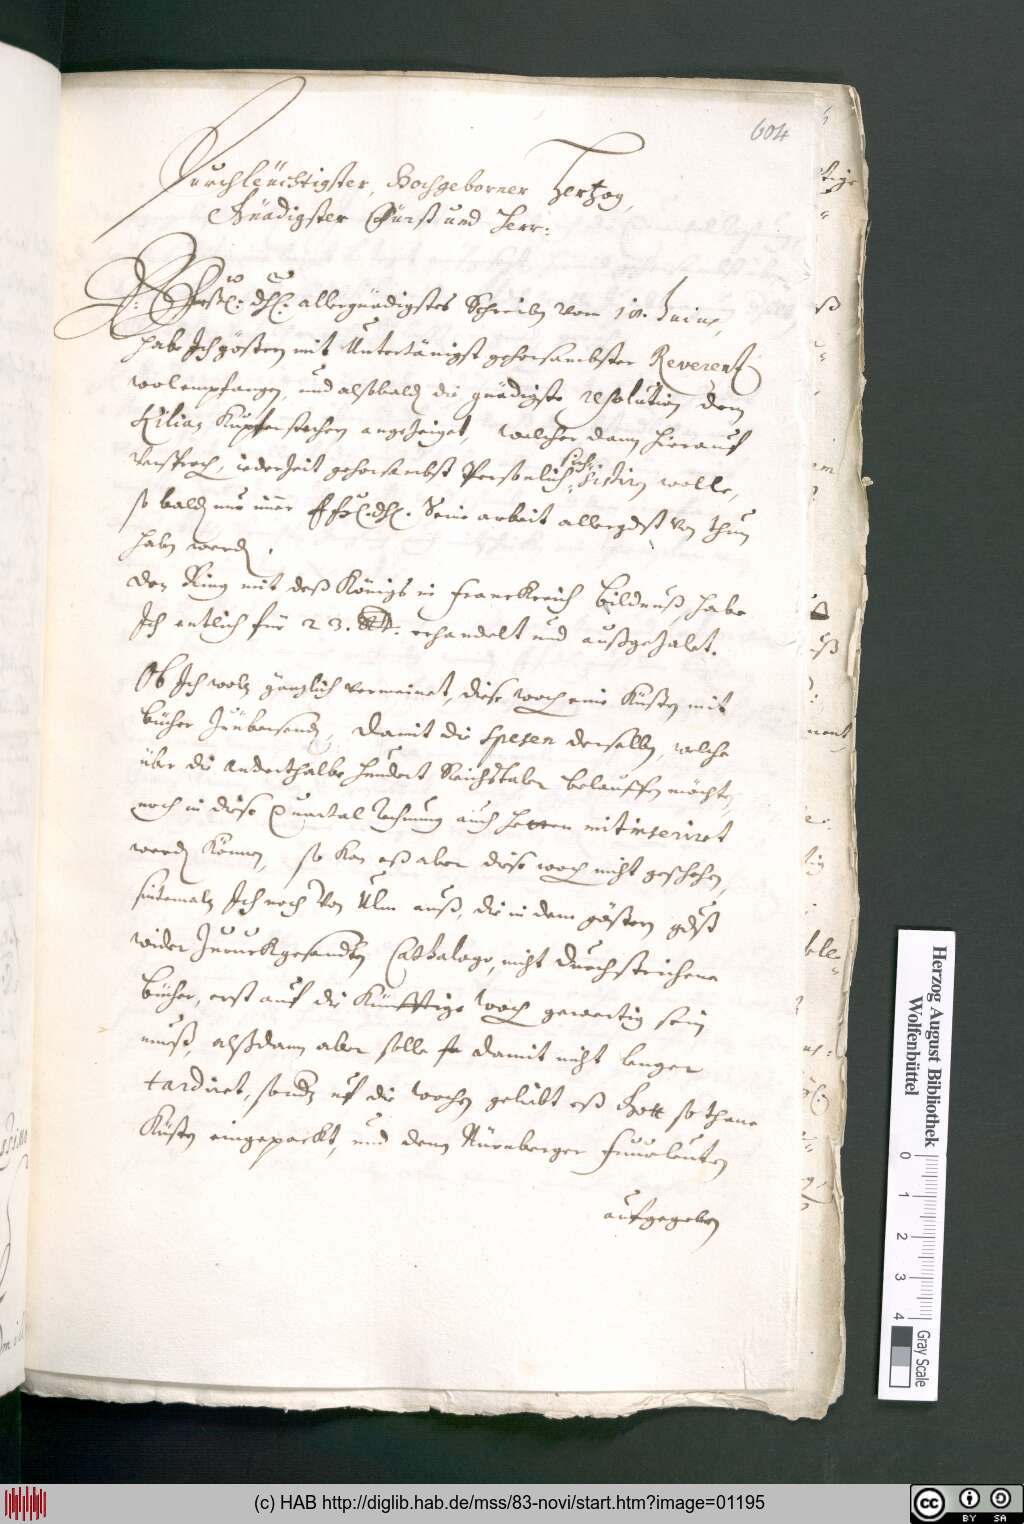 604
Durchleüchtigster, Hochgeborner Hertzog,
Gnädigster Fürst und Herr:
E: Fürstl: dhl: allergnädigstes Schreiben vom 10. Junius,
habe Ich gestern mit Untertänigst gehorsambster Reverentz
wol empfangen, und alsobalden die gnädigste resolution dem
Kilian Kupferstechern angezeiget, welcher dann hierauf
versprach, iederzeit gehorsambst Persönlich
sich
sistiren wolle,
so balden nur immer E fürstl. dhl. Seine arbeit allergdst von thun
haben werden.
Den Ring mit deß Königs in Franckreich Bildnuß, habe
Ich entlich für 23. Rt. erhandelt und außgezalet.
Ob Ich wol gänzlich vermeinet, diese woch eine Kisten mit
bücher Zuübersenden, damit die spesen derselben, welche
über die anderthalbe hundert Reichstaler belauffen möchten,
noch in diese Quartal rechnung auch hetten mit inseriret
werden können, so kan eß aber diese woch nicht geschehen,
sintemaln Ich noch von Ulm auß, die in dem gestern gdst
wider Zuruckgesandten Cathalogo, nicht durchstrichene
Bücher, erst auf die künfftige woch gewertig sein
muß, alßdann aber solle damit nicht lenger
tardiret, sonder uf die wochen geliebt eß Gott so thane
Kisten eingepackt, und dem Nürnberger fuhrleuten
aufgegeben
Herzog August Bibliothek
Wolfenbüttel
0 1 2 3 4
Gray Scale
(c) HAB http://diglib.hab.de/mss/83-novi/start.htm?image=01195
cc BY SA